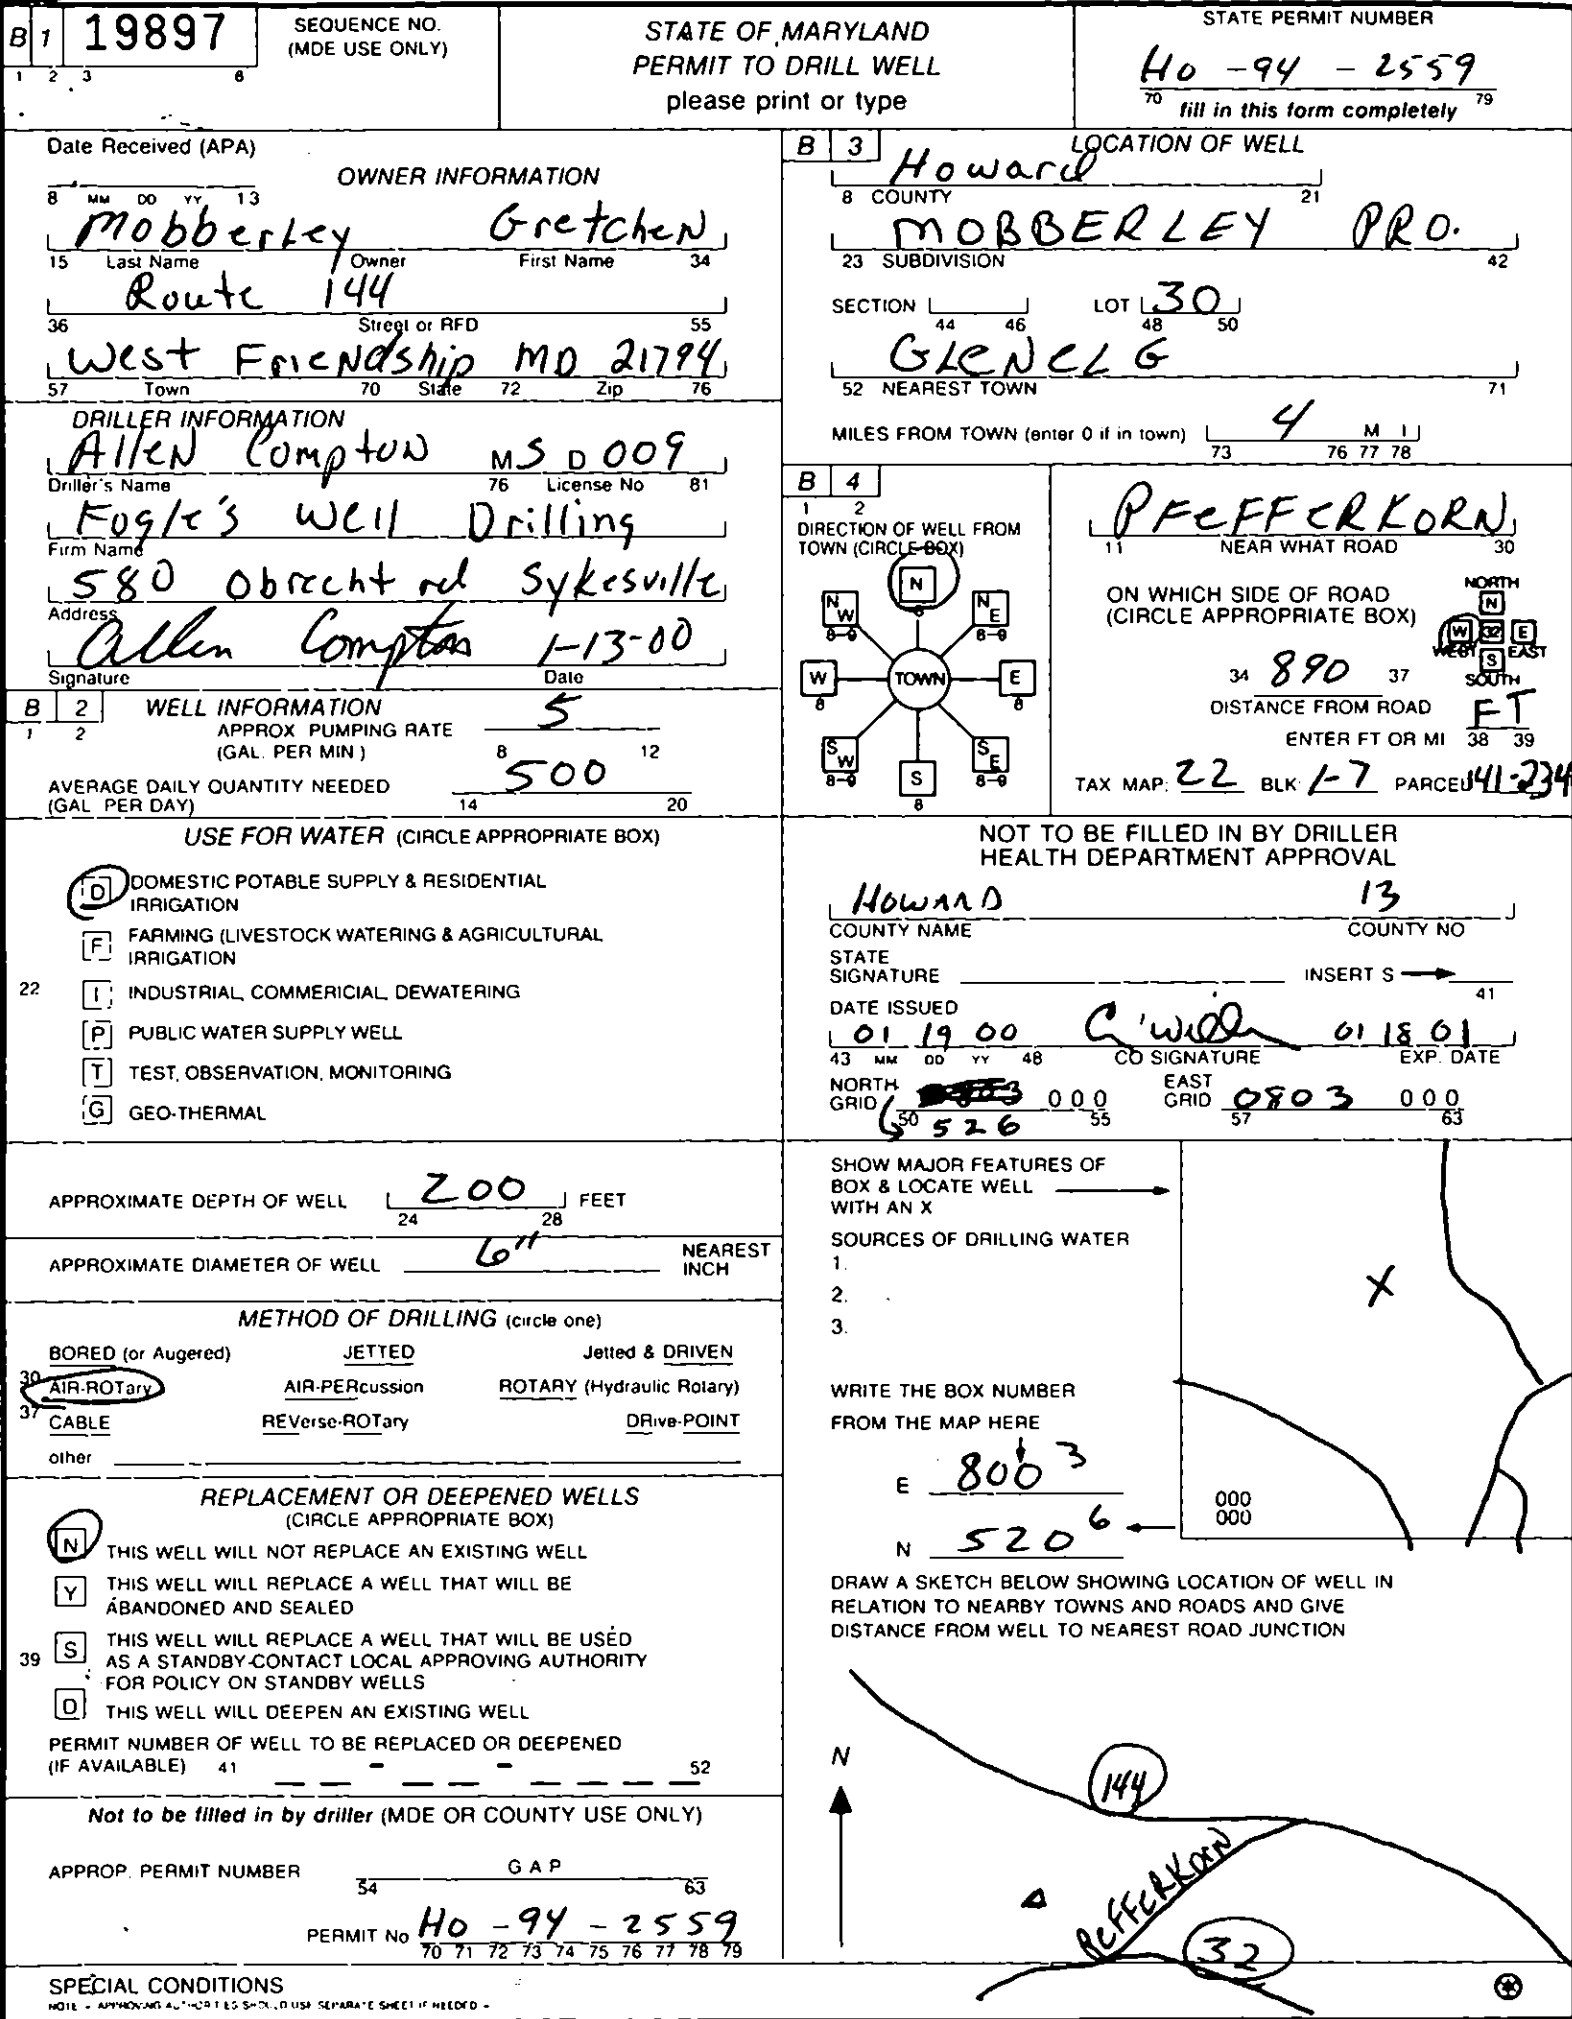 B 1 19897
1 2 3 6
SEQUENCE NO.
(MDE USE ONLY)
STATE OF MARYLAND
PERMIT TO DRILL WELL
please print or type
STATE PERMIT NUMBER
Ho - 94 - 2559
70 79
fill in this form completely
Date Received (APA)
OWNER INFORMATION
8 MM DD YY 13
Mobberley Gretchen
15 Last Name Owner First Name 34
Route 144
36 Street or RFD 55
West Friendship MD 21794
57 Town 70 State 72 Zip 76
DRILLER INFORMATION
Allen Compton MS D 009
Driller's Name 76 License No 81
Fogle's Well Drilling
Firm Name
580 Obrecht rd Sykesville
Address
Allen Compton 1-13-00
Signature Date
B 2 WELL INFORMATION
1 2
APPROX PUMPING RATE 5
(GAL. PER MIN) 8 12
AVERAGE DAILY QUANTITY NEEDED 500
(GAL PER DAY) 14 20
USE FOR WATER (CIRCLE APPROPRIATE BOX)
D DOMESTIC POTABLE SUPPLY & RESIDENTIAL
IRRIGATION
F FARMING (LIVESTOCK WATERING & AGRICULTURAL
IRRIGATION
22 I INDUSTRIAL, COMMERICIAL, DEWATERING
P PUBLIC WATER SUPPLY WELL
T TEST, OBSERVATION, MONITORING
G GEO-THERMAL
APPROXIMATE DEPTH OF WELL 200 FEET
24 28
APPROXIMATE DIAMETER OF WELL 6" NEAREST
INCH
METHOD OF DRILLING (circle one)
BORED (or Augered) JETTED Jetted & DRIVEN
30 AIR-ROTary AIR-PERcussion ROTARY (Hydraulic Rotary)
37 CABLE REVerse-ROTary DRive-POINT
other
REPLACEMENT OR DEEPENED WELLS
(CIRCLE APPROPRIATE BOX)
N THIS WELL WILL NOT REPLACE AN EXISTING WELL
Y THIS WELL WILL REPLACE A WELL THAT WILL BE
ABANDONED AND SEALED
39 S THIS WELL WILL REPLACE A WELL THAT WILL BE USED
AS A STANDBY-CONTACT LOCAL APPROVING AUTHORITY
FOR POLICY ON STANDBY WELLS
D THIS WELL WILL DEEPEN AN EXISTING WELL
PERMIT NUMBER OF WELL TO BE REPLACED OR DEEPENED
(IF AVAILABLE) 41 - - 52
Not to be filled in by driller (MDE OR COUNTY USE ONLY)
APPROP. PERMIT NUMBER G A P
54 63
PERMIT No Ho - 94 - 2559
70 71 72 73 74 75 76 77 78 79
SPECIAL CONDITIONS
NOTE - APPROVING AUTHORITIES SHOULD USE SEPARATE SHEET IF NEEDED -
B 3 LOCATION OF WELL
Howard
8 COUNTY 21
MOBBERLEY PRO.
23 SUBDIVISION 42
SECTION LOT 30
44 46 48 50
GLENELG
52 NEAREST TOWN 71
MILES FROM TOWN (enter 0 if in town) 4 M I
73 76 77 78
B 4
1 2
DIRECTION OF WELL FROM
TOWN (CIRCLE BOX)
N
8
N W N E
8-9 8-9
W TOWN E
8 8
S W S E
8-9 8-9
S
8
PFEFFERKORN
11 NEAR WHAT ROAD 30
ON WHICH SIDE OF ROAD
(CIRCLE APPROPRIATE BOX)
NORTH
N
W 32 E
WEST EAST
S
SOUTH
34 890 37
DISTANCE FROM ROAD FT
ENTER FT OR MI 38 39
TAX MAP: 22 BLK: 1-7 PARCEL 141-234
NOT TO BE FILLED IN BY DRILLER
HEALTH DEPARTMENT APPROVAL
HOWARD 13
COUNTY NAME COUNTY NO
STATE
SIGNATURE INSERT S
41
DATE ISSUED
01 19 00 01 18 01
43 MM DD YY 48 CO SIGNATURE EXP. DATE
NORTH
GRID 000
50 526 55
EAST
GRID 0803 000
57 63
SHOW MAJOR FEATURES OF
BOX & LOCATE WELL
WITH AN X
X
SOURCES OF DRILLING WATER
1.
2.
3.
WRITE THE BOX NUMBER
FROM THE MAP HERE
E 800 3
N 520 6
000
000
DRAW A SKETCH BELOW SHOWING LOCATION OF WELL IN
RELATION TO NEARBY TOWNS AND ROADS AND GIVE
DISTANCE FROM WELL TO NEAREST ROAD JUNCTION
N
144
PEFFERKORN
32